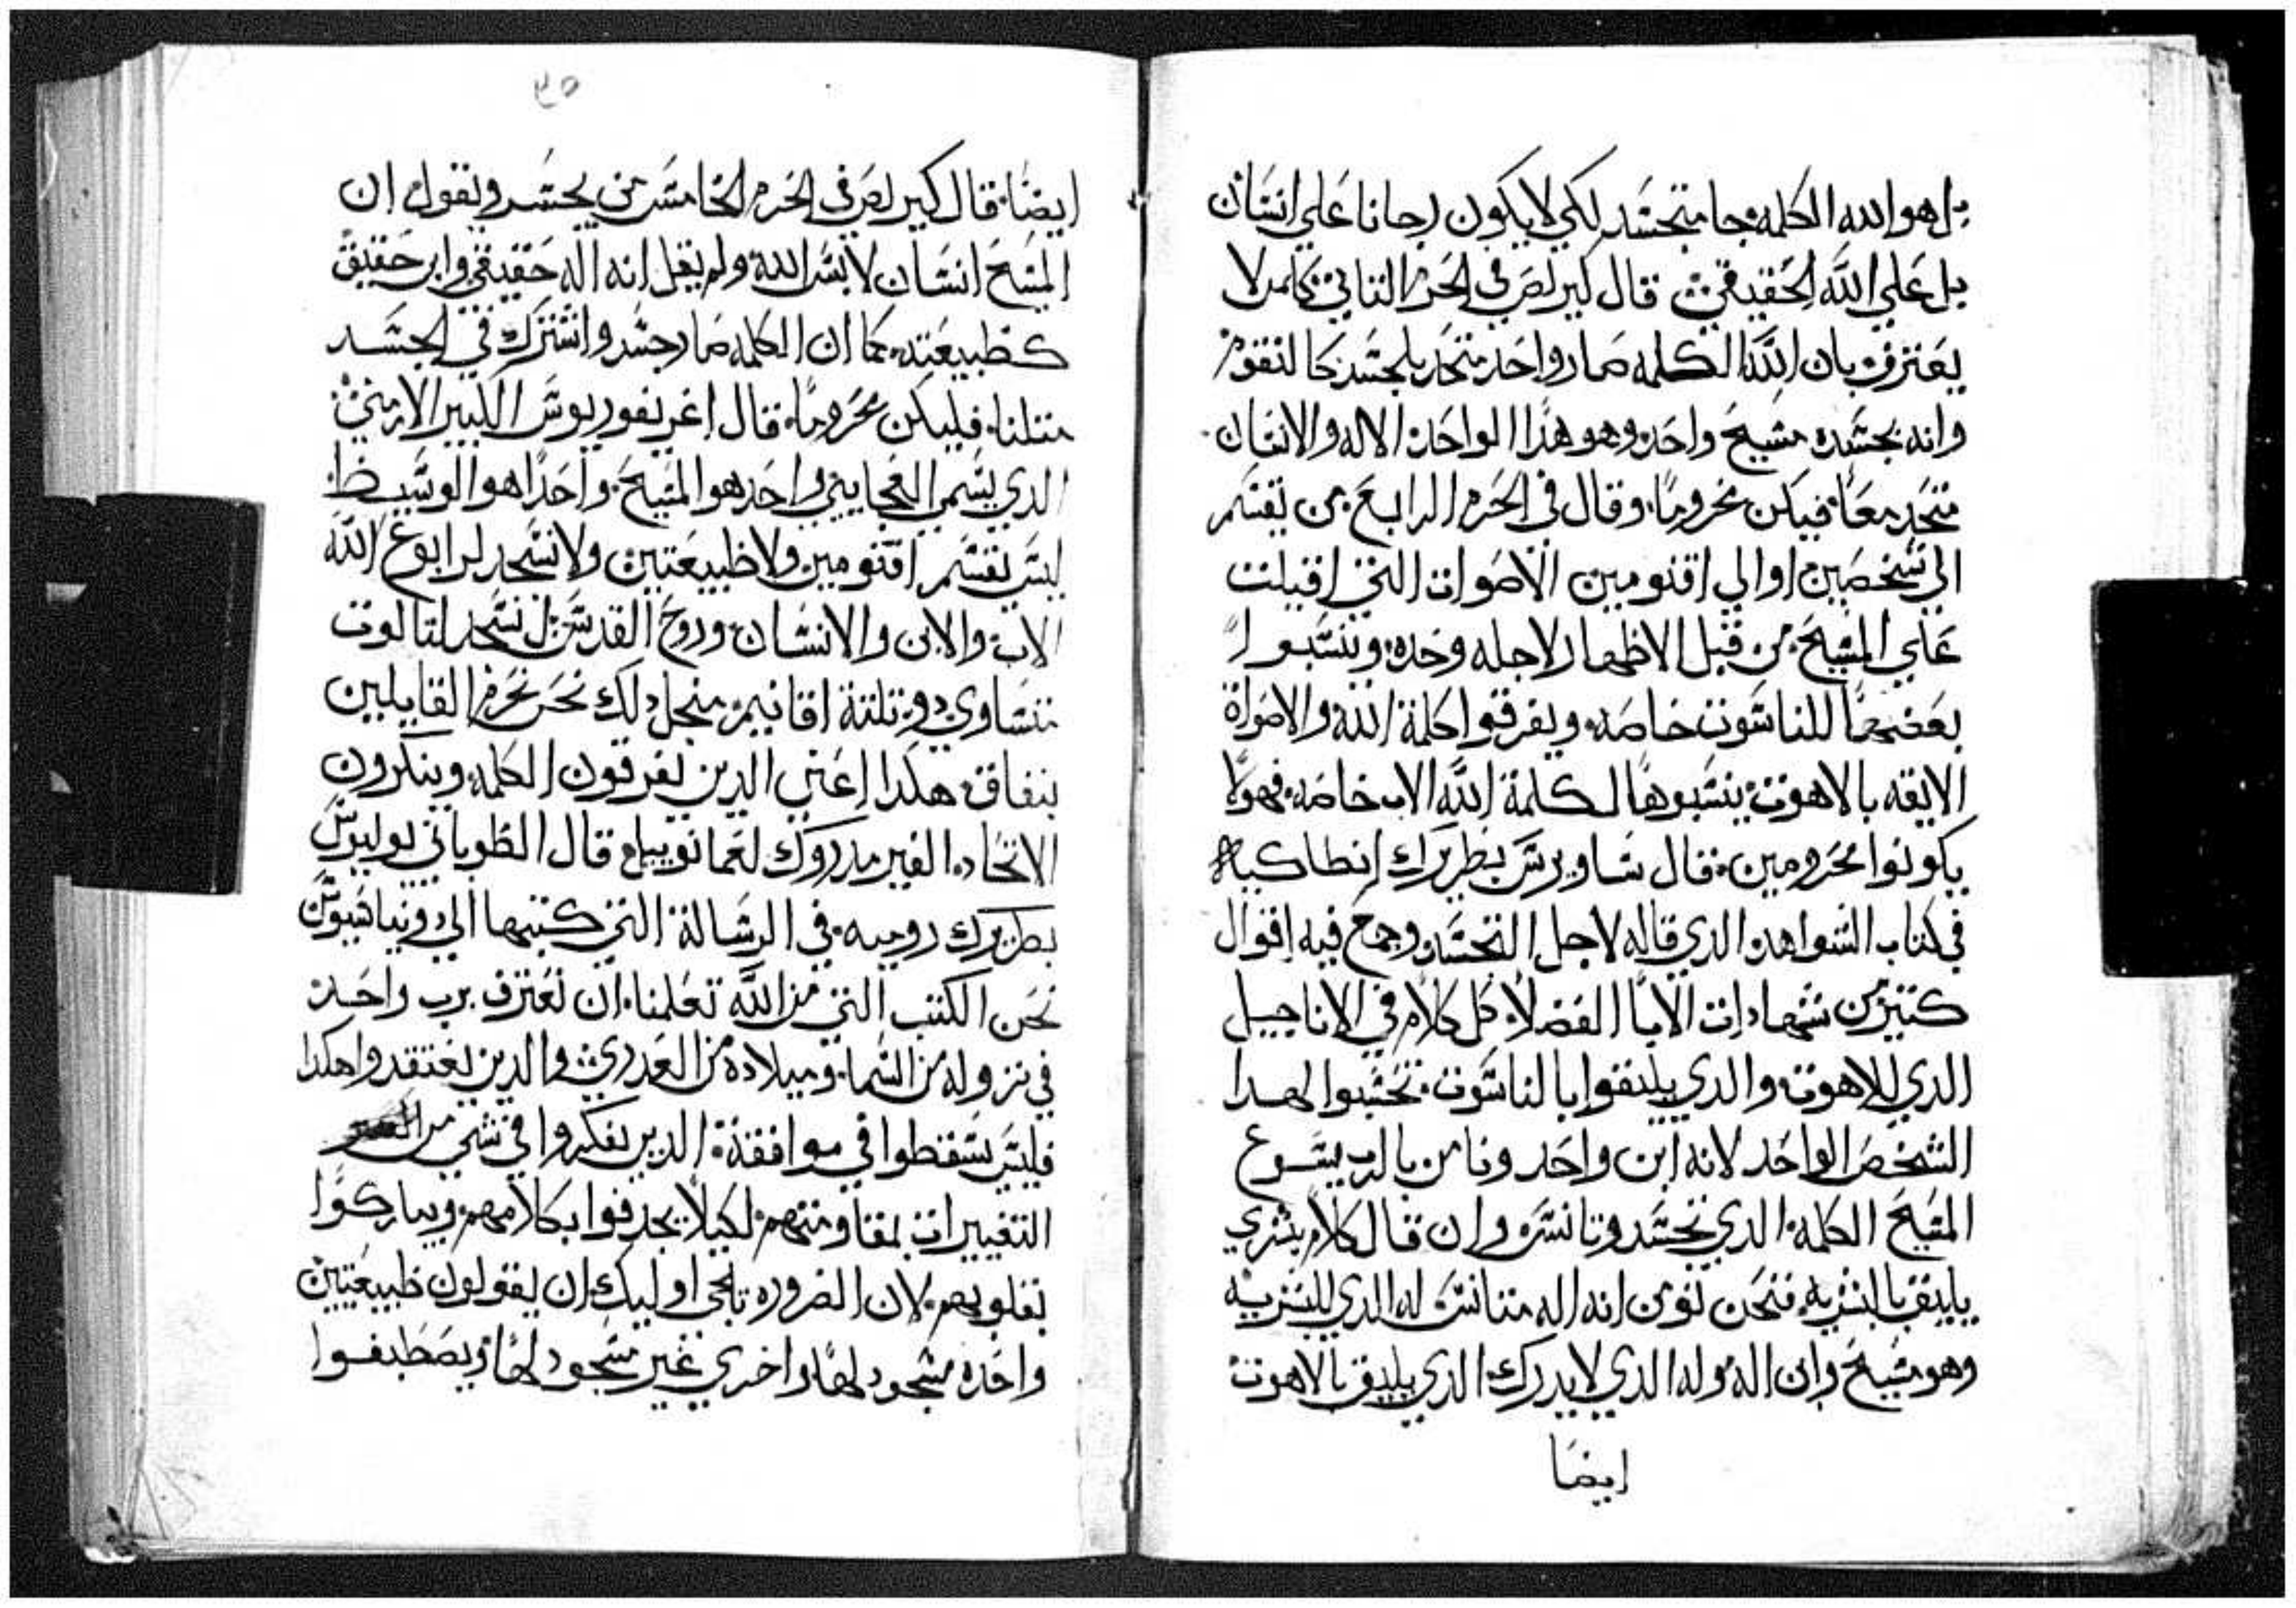 بل هو الله الكلمه جا متجسد لكي لا يكون رجانا علي انسان
بل علي الله الحقيقي قال كيرلص في الحرم التاني كلمن لا
يعترف بان الله الكلمه صار واحد متحد بالجسد كالنقوم
وانه بجسده مسيح واحد وهو هذا الواحد الاله والانسان
متحد معا فيكن محروما وقال في الحرم الرابع من يقسم
الي شخصين او الي اقنومين الاصوات التي اقيلت
علي المسيح من قبل الاظهار لاجله وحده وينسبوا
بعضهما للناسوت خاصه ويفرقوا كلمة الله والاصواة
الايقه بالاهوت ينسبوها لكلمة الله الاب خاصه فهولا
يكونوا محرومين قال ساويرس بطريرك انطاكيه
في كتاب الشواهد الذي قاله لاجل التجسد وجمع فيه اقوال
كتير من شهادات الابا الفضلا كل كلام في الاناجيل
الدي للاهوت والدي يليقوا بالناسوت تحسبوا لهدا
الشخص الواحد لانه ابن واحد ونامن بالرب يسوع
المسيح الكلمه الدي تجسد وتانس وان قال كلام بشري
يليق بالبشريه فنحن نومن انه اله متانس له الدي للبشريه
وهو مسيح وان اله وله الدي لا يدرك الدي يليق بالاهوت
ايضا
٣٥
ايضا قال كيرلص في الحرم الخامس من يجسر ويقول ان
المسيح انسان لابس الله ولم يقل انه اله حقيقي وابن حقيقي
كطبيعته كما ان الكلمه صار جسد واشترك في الجسد
متلنا فليكن محروما قال اغريغوريوس الكبير الارمني
الدي يسمي العجايبي واحد هو المسيح واحدا هو الوسيط
ليس نقسم اقنومين ولا طبيعتين ولا نسجد لرابوع الله
الاب والابن والانسان وروح القدس بل نسجد لتالوت
متساوي دو تلتة اقانيم منجل دلك نحن نحرم القايلين
بنفاق هكدا اعني الدين يفرقون الكلمه وينكرون
الاتحاد الغير مدروك لعمانوييل قال الطوباني يوليوس
بطريرك روميه في الرسالة التي كتبها الي دونياسيوس
نحن الكتب التي من الله تعلمنا ان نعترف برب واحد
في نزوله من السما وميلاده من العدري والدين يعتقدوا هكدا
فليس يسقطوا في موافقة الدين يفكروا في شي من
التغييرات بمقاومتهم لكيلا يجدفوا بكلامهم ويباركوا
بقلوبهم لان الضروره تلجي اوليك ان يقولون طبيعتين
واحده مسجود لها واخري غير مسجود لها ويصطبغوا